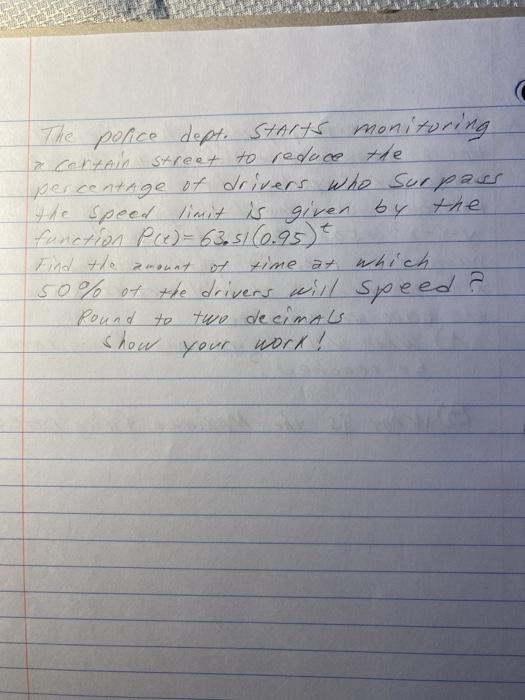 The police dept. starts monitoring
a certain street to reduce the
percentage of drivers who surpass
the speed limit is given by the
function P(t)=63.51(0.95)^t
Find the amount of time at which
50% of the drivers will speed?
Round to two decimals
show your work!